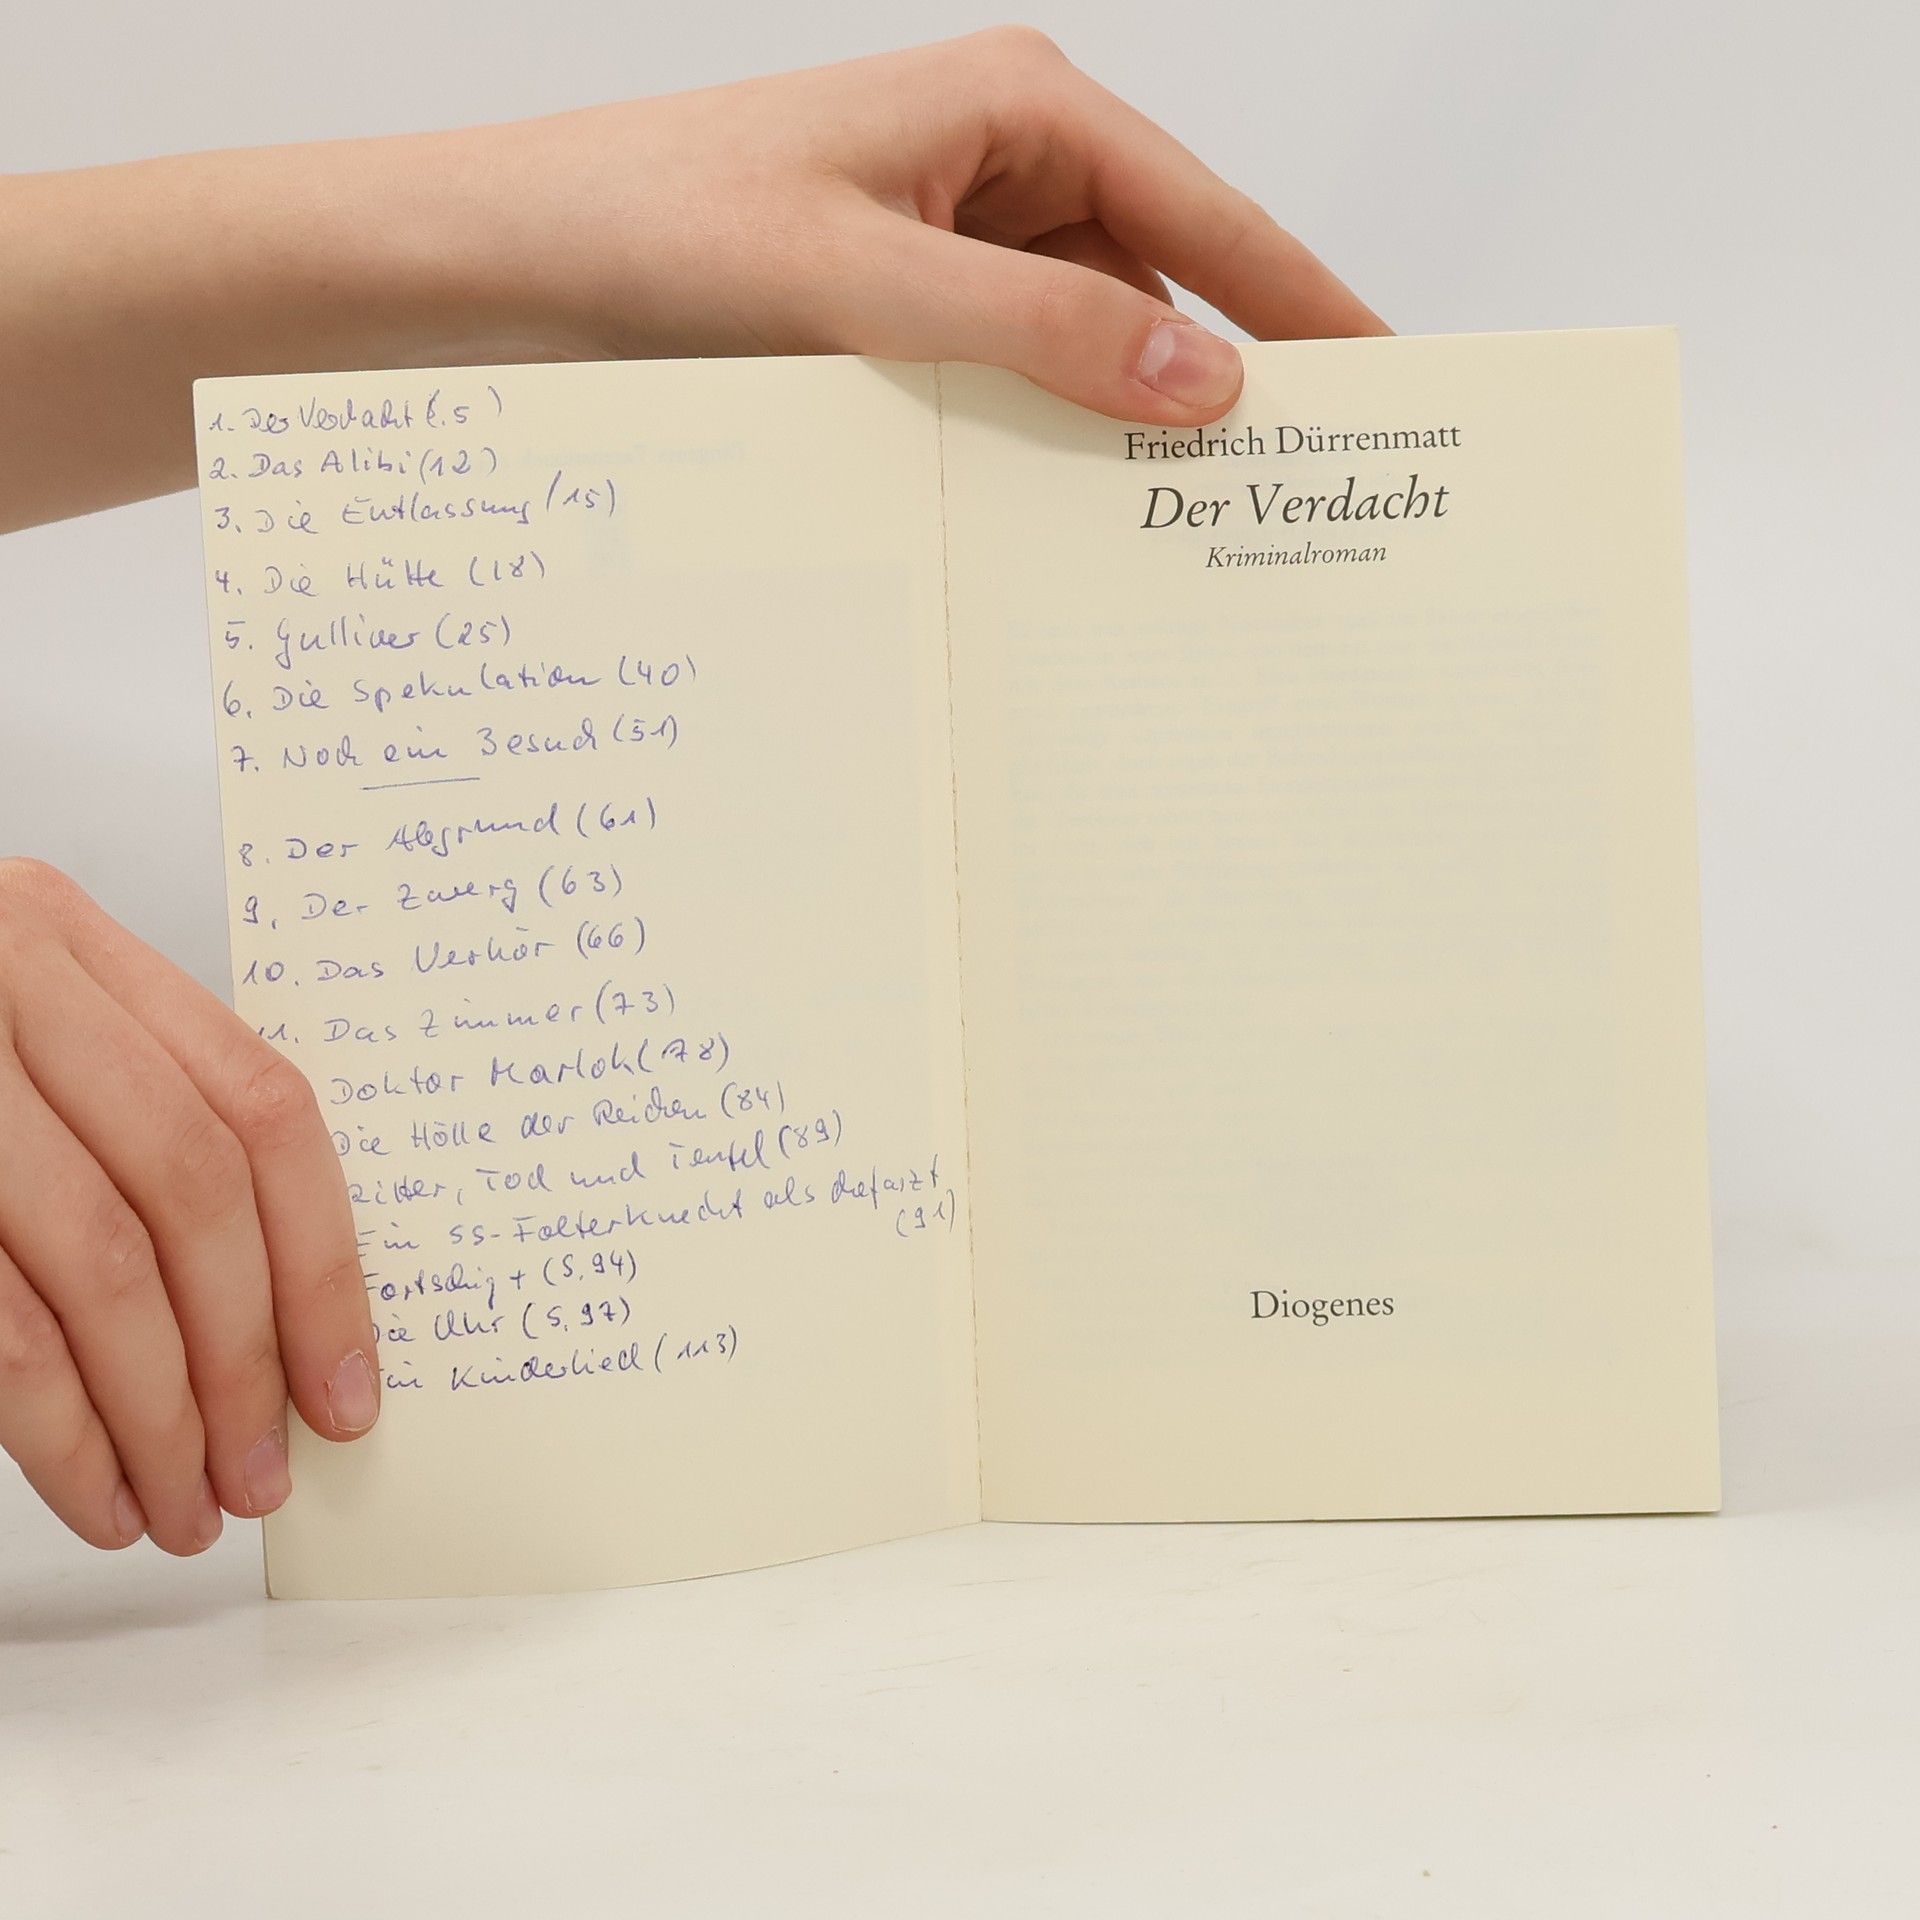 1. Der Verdacht (.5)
2. Das Alibi (12)
3. Die Entlassung (15)
4. Die Hütte (18)
5. Gulliver (25)
6. Die Spekulation (40)
7. Noch ein Besuch (51)
8. Der Abgrund (61)
9. Der Zwerg (63)
10. Das Verhör (66)
11. Das Zimmer (73)
Doktor Marlok (78)
Die Hölle der Reichen (84)
Ritter, Tod und Teufel (89)
Ein SS-Folterknecht als Chefarzt
(91)
Fortschig + (S. 94)
Die Uhr (S. 97)
Ein Kinderlied (113)
Friedrich Dürrenmatt
Der Verdacht
Kriminalroman
Diogenes